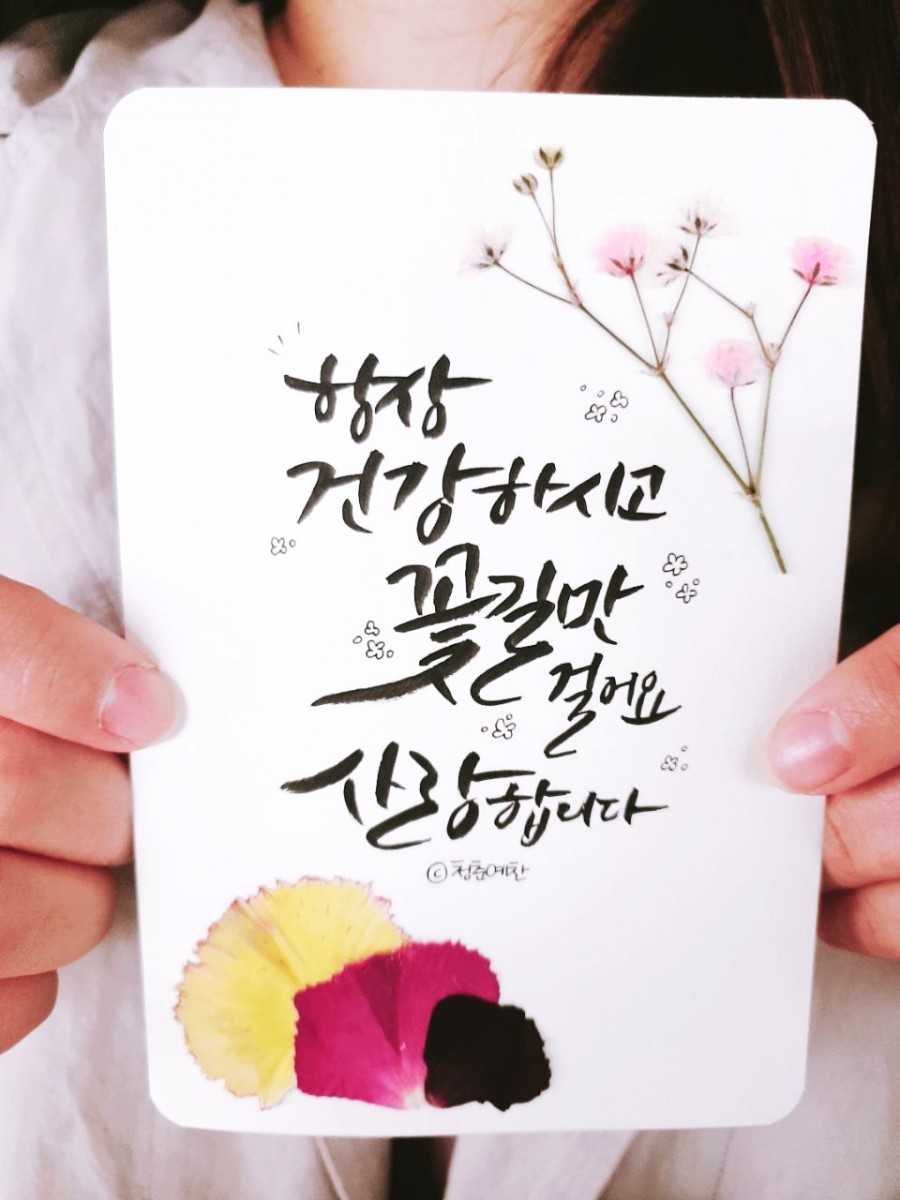 항상
건강하시고
꽃길만
걸어요
사랑합니다
ⓒ청춘예찬